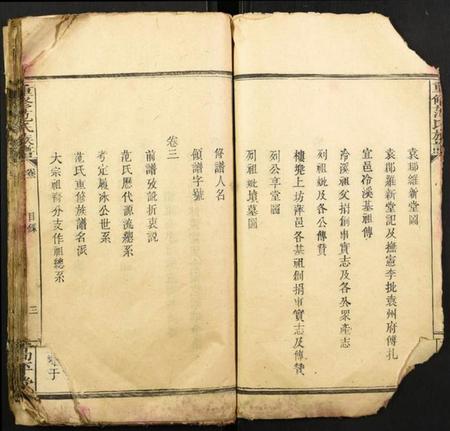 袁郡維新堂圖
袁郡維新堂記及撫憲李批袁州府傅扎
宜邑冷溪基祖傳
冷溪祖父捐創事實志及各外眾產志
列祖妣及各公傳贊
樓凳上坊萍邑各基祖創捐事實志及傳贊
列公享堂圖
列祖妣墳墓圖
修譜人名
領譜字號
卷三
前譜攷說折衷說
范氏歷代源流總系
考定履冰公世系
范氏重修族譜名派
大宗祖裔分支作祖總系
重修范氏族譜
卷
目錄
三
高平堂